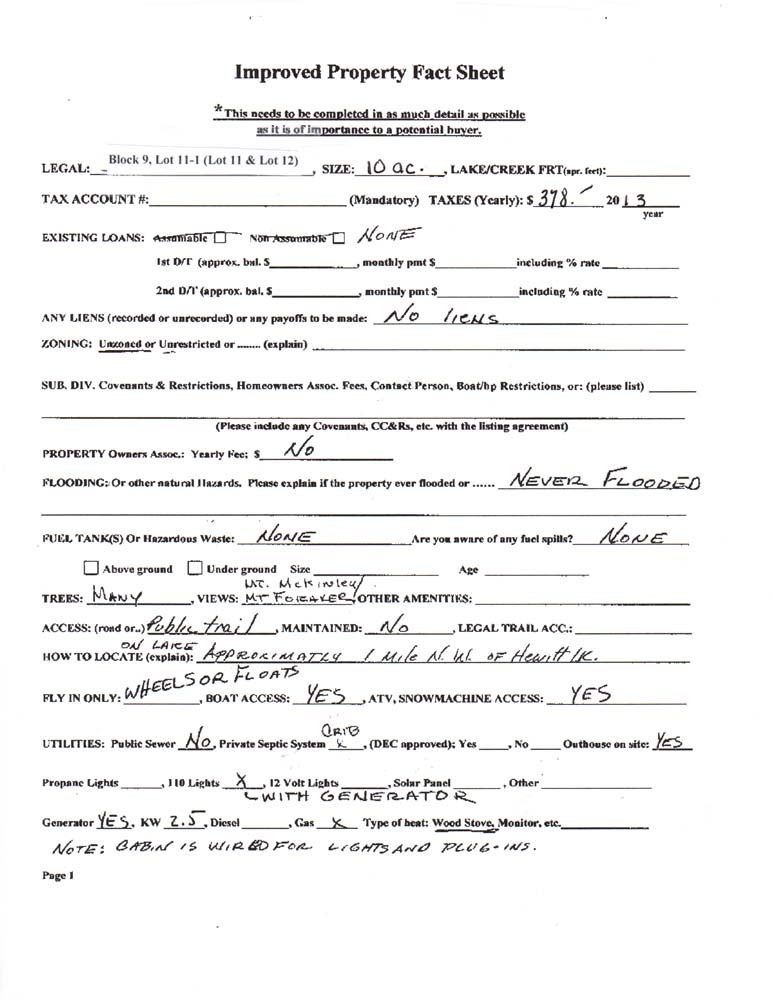 Improved Property Fact Sheet
*This needs to be completed in as much detail as possible
as it is of importance to a potential buyer.
LEGAL: Block 9, Lot 11-1 (Lot 11 & Lot 12), SIZE: 10 ac., LAKE/CREEK FRT(apr. feet):
TAX ACCOUNT #: (Mandatory) TAXES (Yearly): $ 378.- 2013
year
EXISTING LOANS: Assumable ☐ Non Assumable ☐ NONE
1st D/T (approx. bal. $ , monthly pmt $ including % rate
2nd D/T (approx. bal. $ , monthly pmt $ including % rate
ANY LIENS (recorded or unrecorded) or any payoffs to be made: No liens
ZONING: Unzoned or Unrestricted or ........ (explain)
SUB. DIV. Covenants & Restrictions, Homeowners Assoc. Fees, Contact Person, Boat/hp Restrictions, or: (please list)
(Please include any Covenants, CC&Rs, etc. with the listing agreement)
PROPERTY Owners Assoc.: Yearly Fee: $ No
FLOODING: Or other natural Hazards. Please explain if the property ever flooded or ...... NEVER FLOODED
FUEL TANK(S) Or Hazardous Waste: NONE Are you aware of any fuel spills? NONE
☐ Above ground ☐ Under ground Size Age
MT. McKinley/
TREES: MANY, VIEWS: MT FORAKER, OTHER AMENITIES:
ACCESS: (road or..) Public trail, MAINTAINED: No, LEGAL TRAIL ACC.:
ON LAKE
HOW TO LOCATE (explain): APPROXIMATLY 1 Mile N.W. OF Hewitt lk.
FLY IN ONLY: WHEELS OR FLOATS, BOAT ACCESS: YES, ATV, SNOWMACHINE ACCESS: YES
CRIB
UTILITIES: Public Sewer NO, Private Septic System X, (DEC approved); Yes , No Outhouse on site: YES
Propane Lights , 110 Lights X, 12 Volt Lights , Solar Panel , Other
WITH GENERATOR
Generator YES, KW 2.5, Diesel , Gas X Type of heat: Wood Stove, Monitor, etc.
NOTE: CABIN IS WIRED FOR LIGHTS AND PLUG-INS.
Page 1